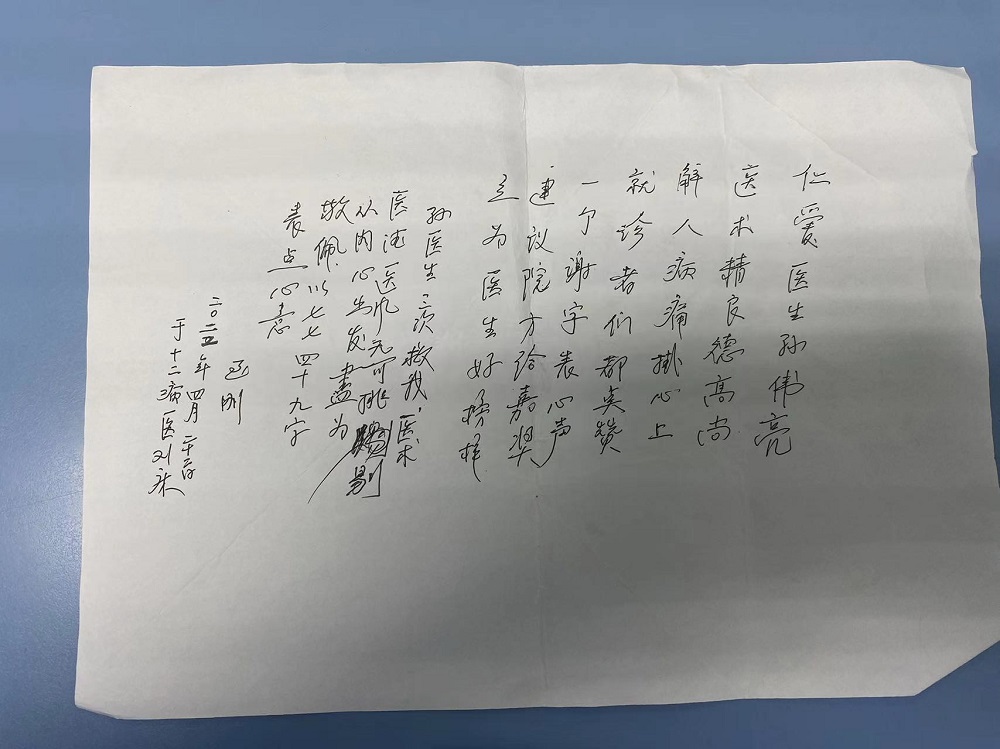 仁爱医生孙伟亮
医术精良德高尚
解人病痛掛心上
就诊者们都夹赞
一个谢字表心声
建议院方给嘉奖
立为医生好榜样
孙医生三次救我，医术
医德医风无可挑剔
从内心出发盡为
敬佩.以七七四十九字
表点心意
刚
二〇二五年四月二十二日
于十二病医刘床